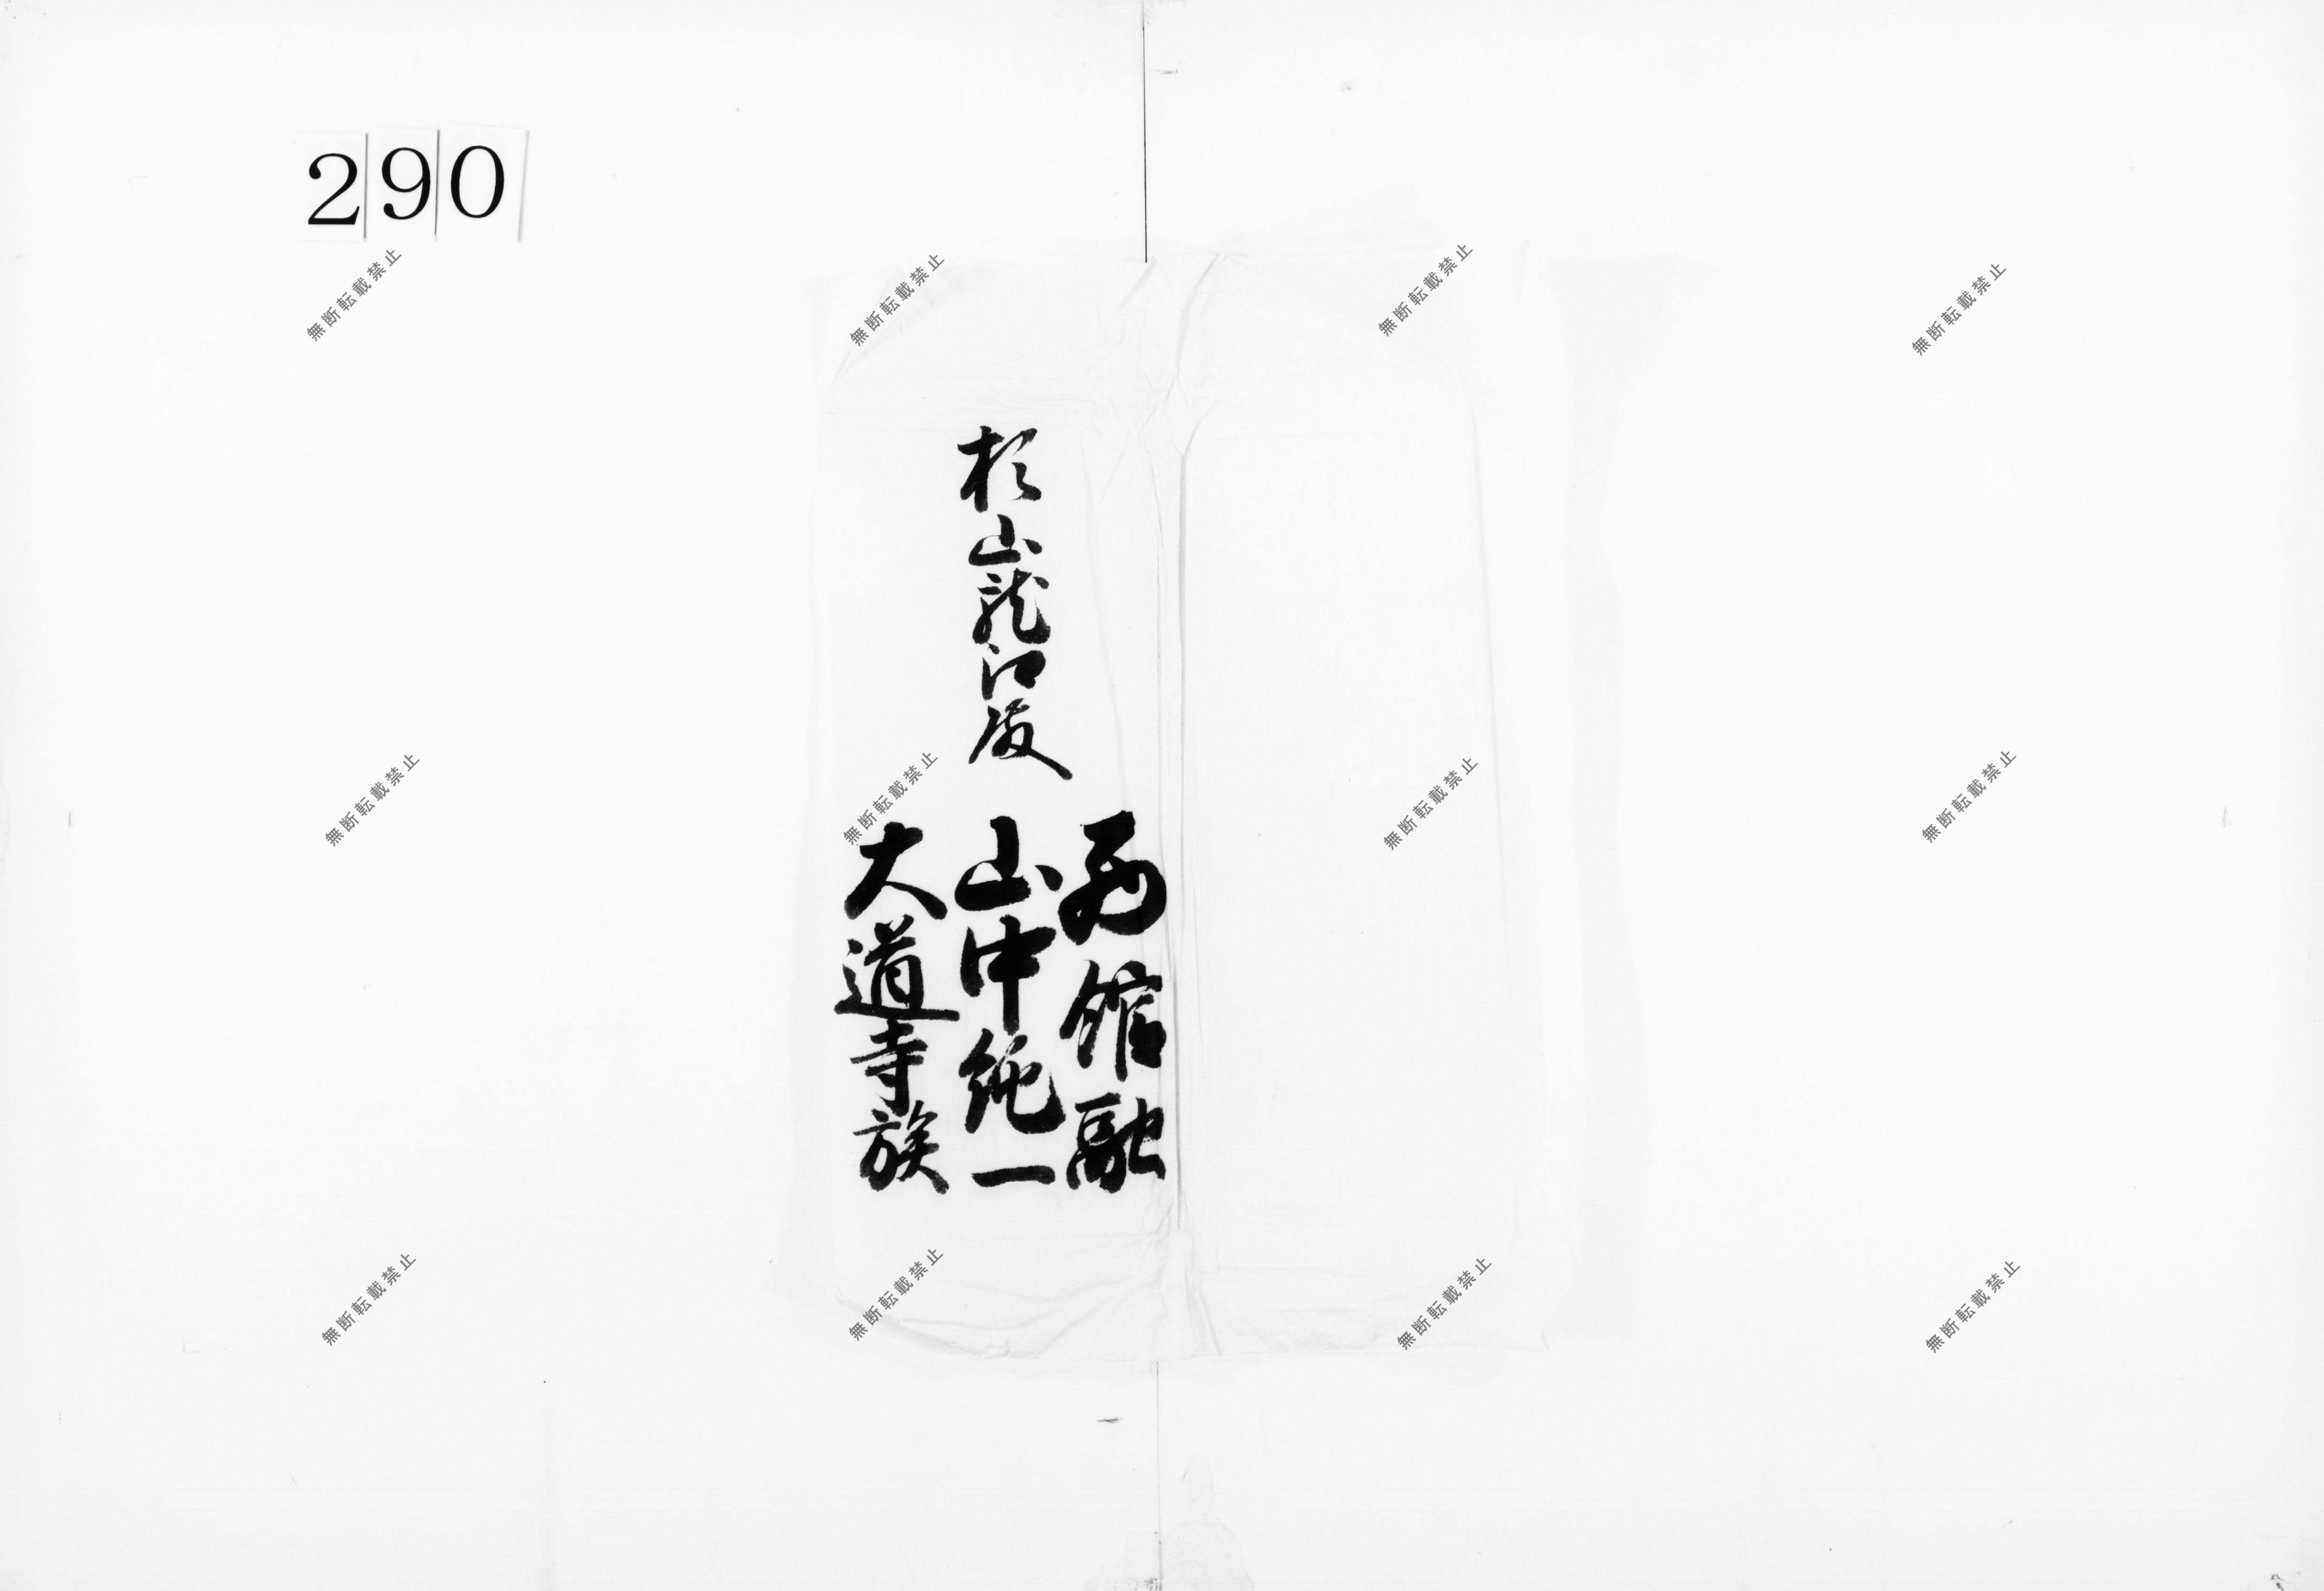 290
杉山龍江殿
西館融
山中純一
大道寺族
無断転載禁止
無断転載禁止
無断転載禁止
無断転載禁止
無断転載禁止
無断転載禁止
無断転載禁止
無断転載禁止
無断転載禁止
無断転載禁止
無断転載禁止
無断転載禁止